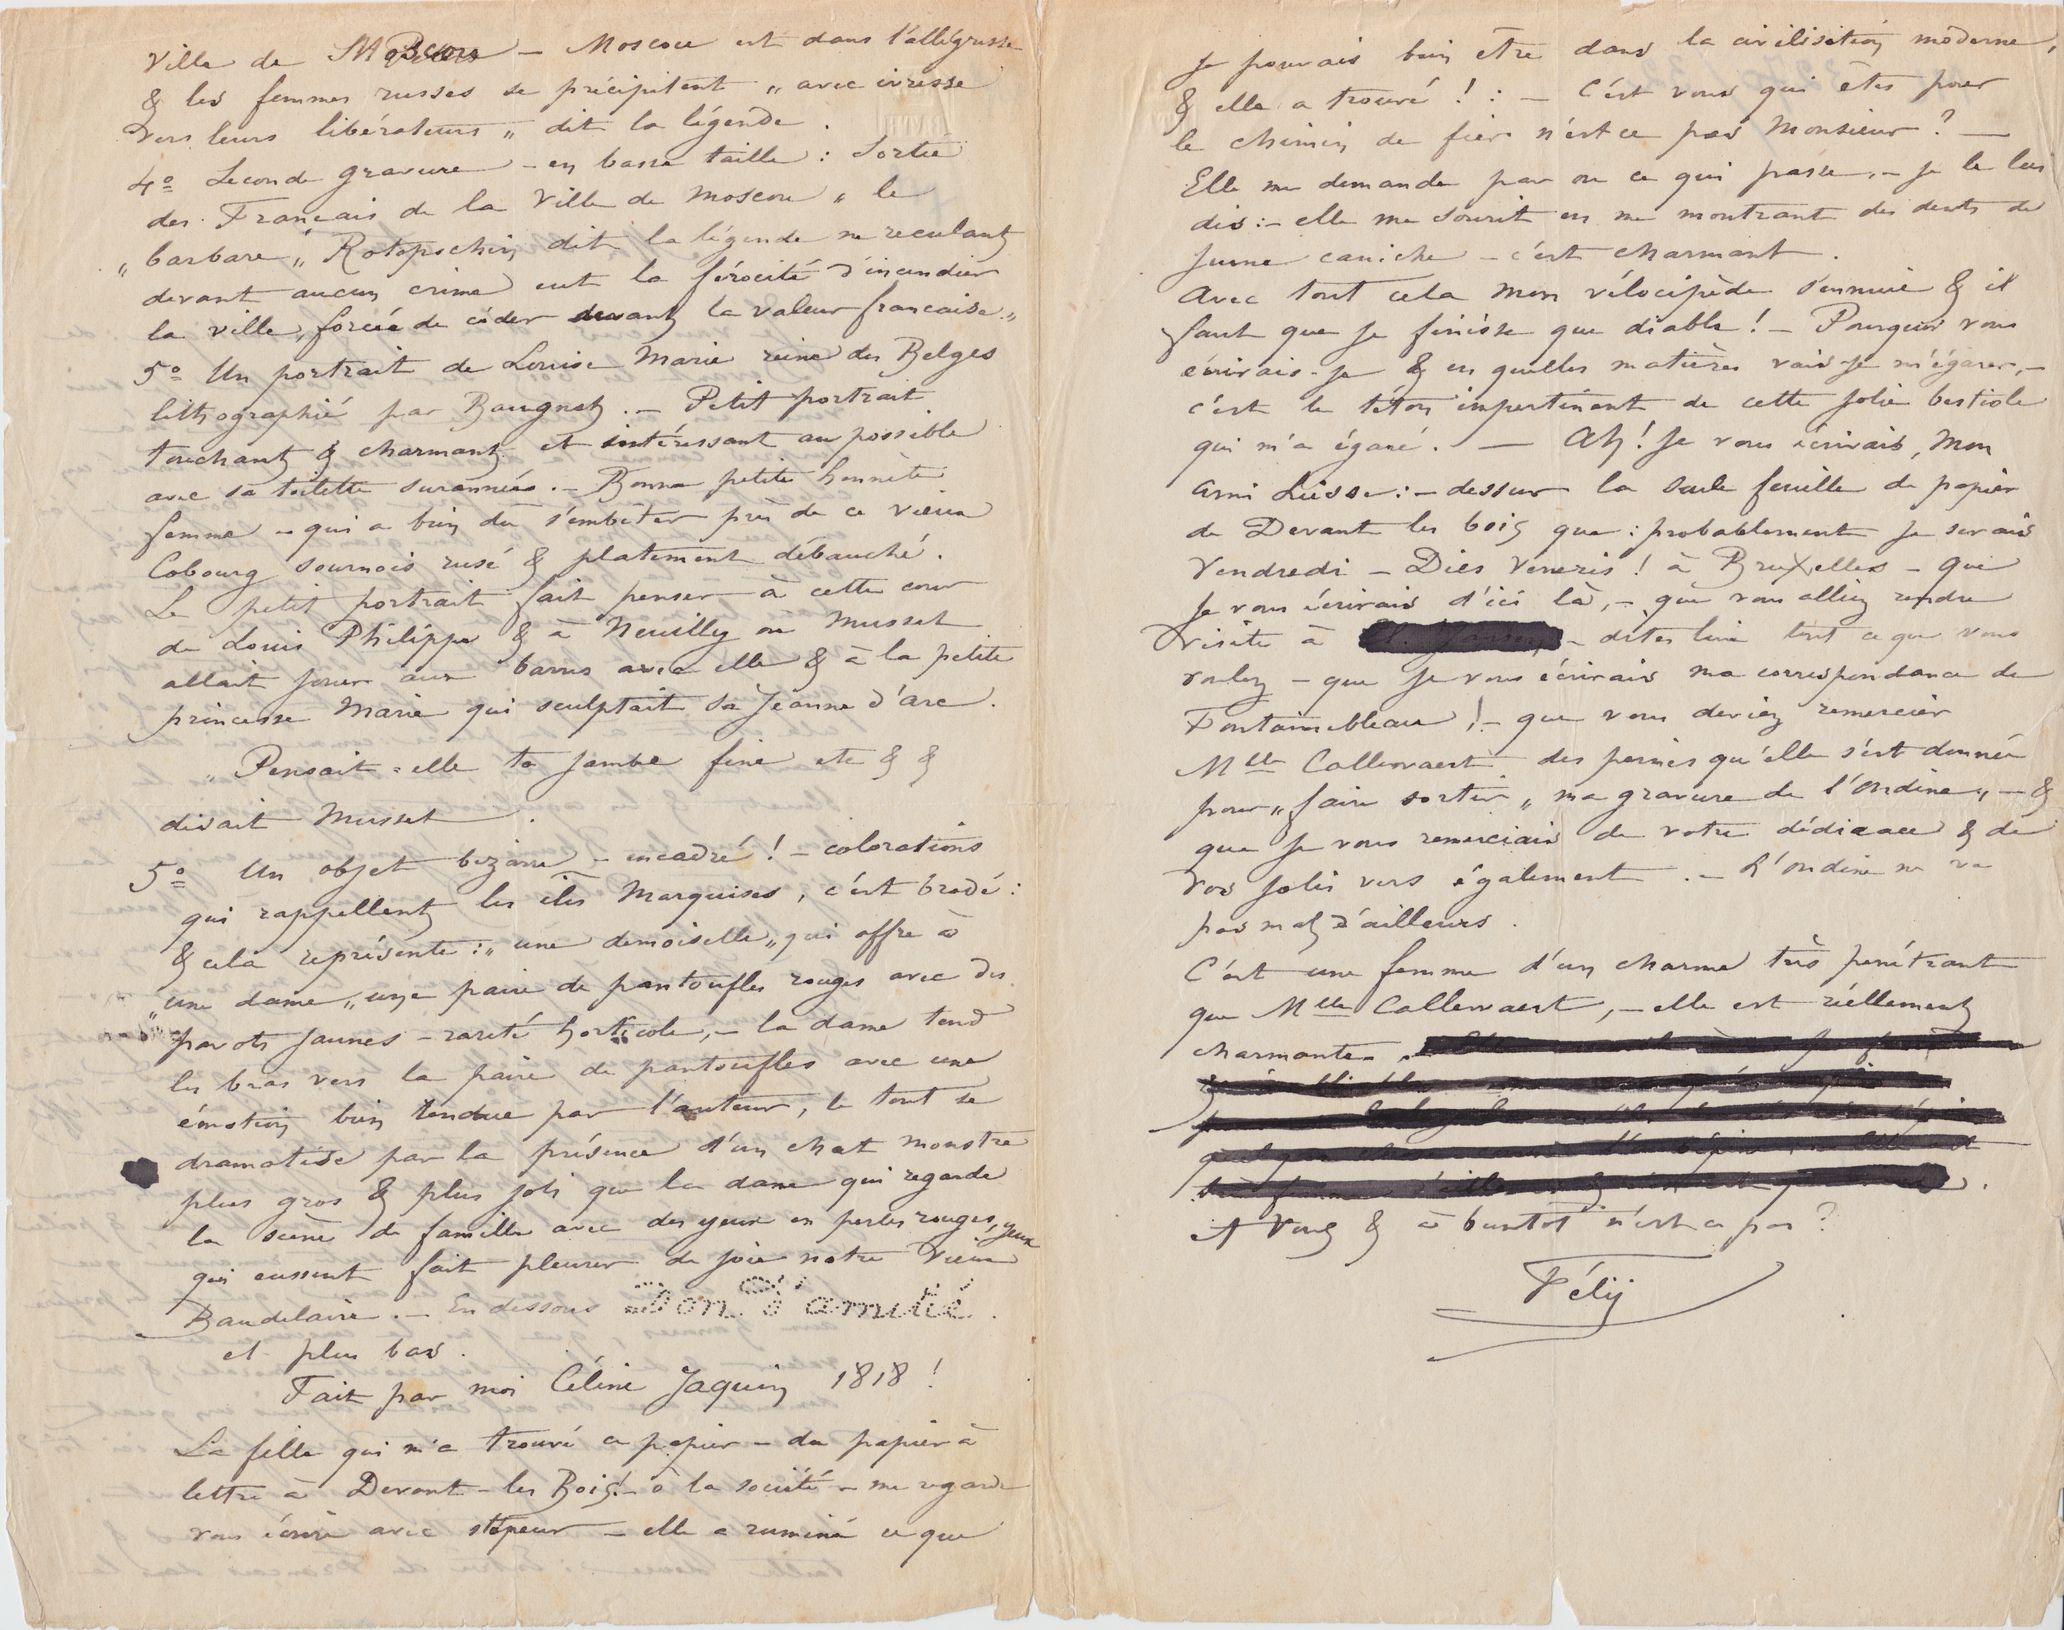 Ville de Moscou — Moscou est dans l'allégresse
& les femmes russes se précipitent „ avec ivresse
vers leurs libérateurs „ dit la légende.
4º Seconde gravure – en basse taille : Sortie
des Français de la Ville de Moscou „ le
„ barbare „ Rotopschin dit la légende ne reculant
devant aucun crime eut la férocité d'incendier
la ville, forcée de céder devant la valeur française. „
5º Un portrait de Louise Marie reine des Belges
lithographié par Baugnet. – Petit portrait
touchant & charmant et intéressant au possible
avec sa toilette surannée. – Bonne petite honnête
femme – qui a bien dû s'embêter près de ce vieux
Cobourg sournois rusé & platement débauché.
Le petit portrait fait penser à cette cour
de Louis Philippe & à Neuilly où Musset
allait jouer aux barres avec elle & à la petite
princesse Marie qui sculptait sa Jeanne d'arc.
„ Pensait-elle ta jambe fine etc & &
disait Musset.
5º Un objet bizarre – encadré ! – colorations
qui rappellent les iles Marquises, c'est brodé :
& cela représente : „ une demoiselle „ qui offre à
„ une dame „ une paire de pantoufles rouges avec des
pavots jaunes – rareté horticole, – la dame tend
les bras vers la paire de pantoufles avec une
émotion bien rendue par l'auteur, le tout se
dramatise par la présence d'un chat monstre
plus gros & plus joli que la dame qui regarde
la scène de famille avec des yeux en perles rouges, yeux
qui eussent fait pleurer de joie notre vieux
Baudelaire. – En dessous Don d'amitié.
et plus bas.
Fait par moi Céline Jaquin 1818 !
La fille qui m'a trouvé ce papier – du papier à
lettre à Devant-les Bois ! – à la société – me regarde
vous écrire avec stupeur – elle a ruminé ce que
je pouvais bien être dans la civilisation moderne,
& elle a trouvé ! : – C'est vous qui êtes pour
le chemin de fier n'est ce pas Monsieur ? —
Elle me demande par où ce qui passe, – je le lui
dis : – elle me sourit en me montrant des dents de
jeune caniche – c'est charmant.
Avec tout cela mon vélocipède s'ennuie & il
faut que je finisse que diable ! – Pourquoi vous
écrivais-je & en quelles matières vais-je m'égarer, –
c'est le téton impertinent de cette jolie bestiole
qui m'a égaré. — Ah ! Je vous écrivais, mon
ami Liesse : – dessur la seule feuille de papier
de Devant les bois que : probablement je serais
Vendredi – Dies Veneris ! à Bruxelles – que
je vous écrirais d'ici là, – que vous alliez rendre
visite à – dites lui tout ce que vous
voulez – que je vous écrirais ma correspondance de
Fontainebleau ! – que vous deviez remercier
Mlle Callewaert des peines qu'elle s'est donnée
pour „ faire sortir „ ma gravure de l'Ondine „ – &
que je vous remerciais de votre dédicace & de
vos jolis vers également. – L'Ondine ne va
pas mal d'ailleurs.
C'est une femme d'un charme très pénétrant
que Mlle Callewaert, – elle est réellement
charmante.
A Vous & à bientôt n'est ce pas ?
Fély